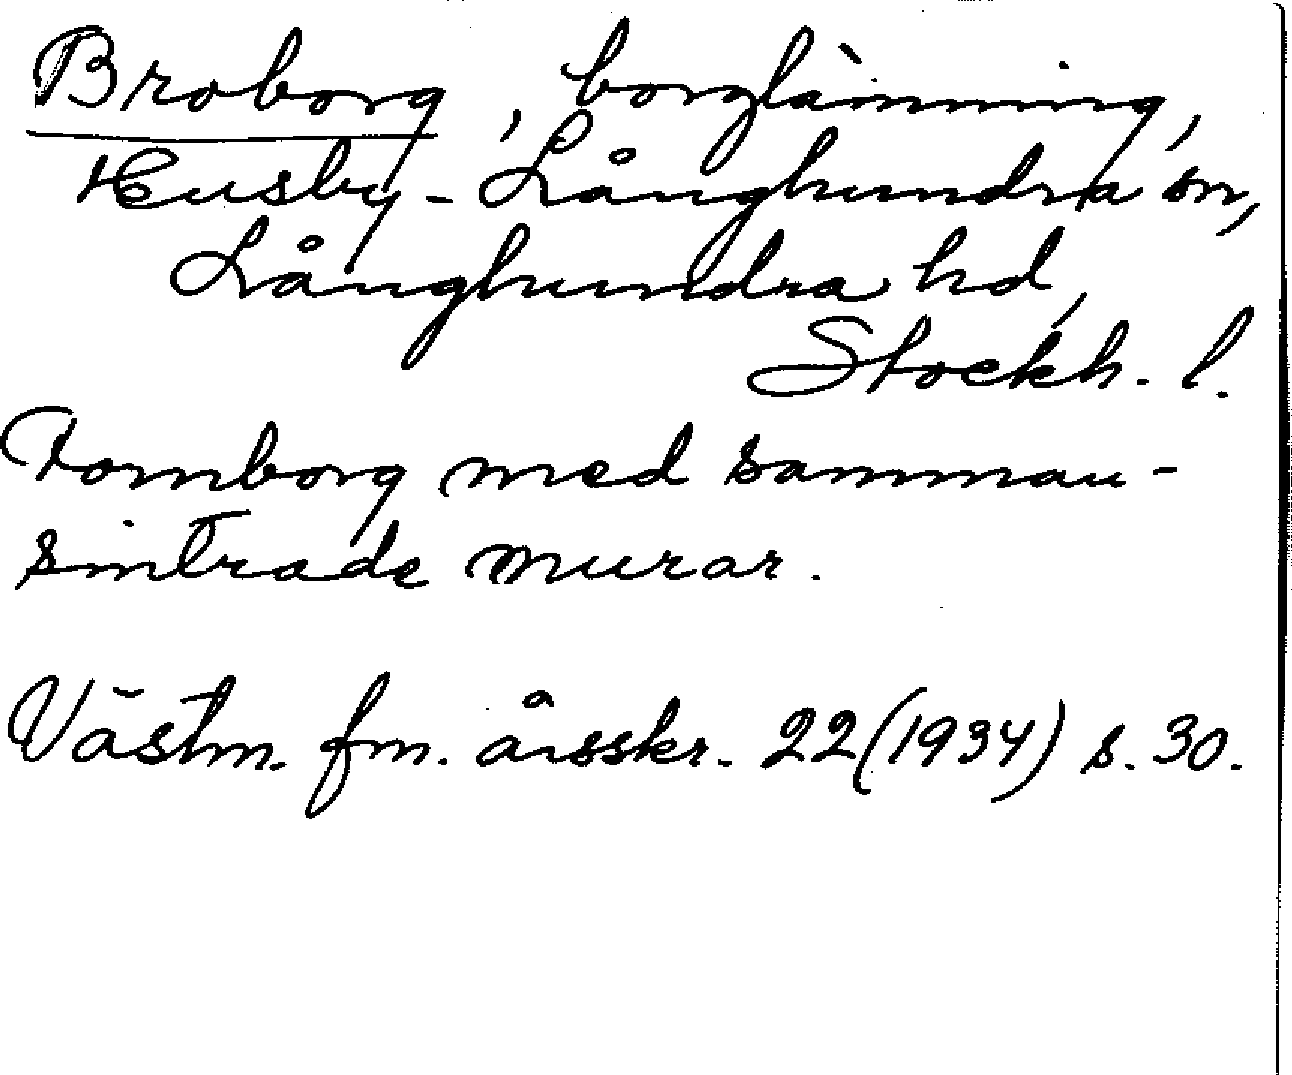 Broborg, borglämning,
Husby-Långhundra sn,
Långhundra hd,
Stockh. l.
Fornborg med samman-
sintrade murar.
Västm. fm. årsskr. 22 (1934) s. 30.